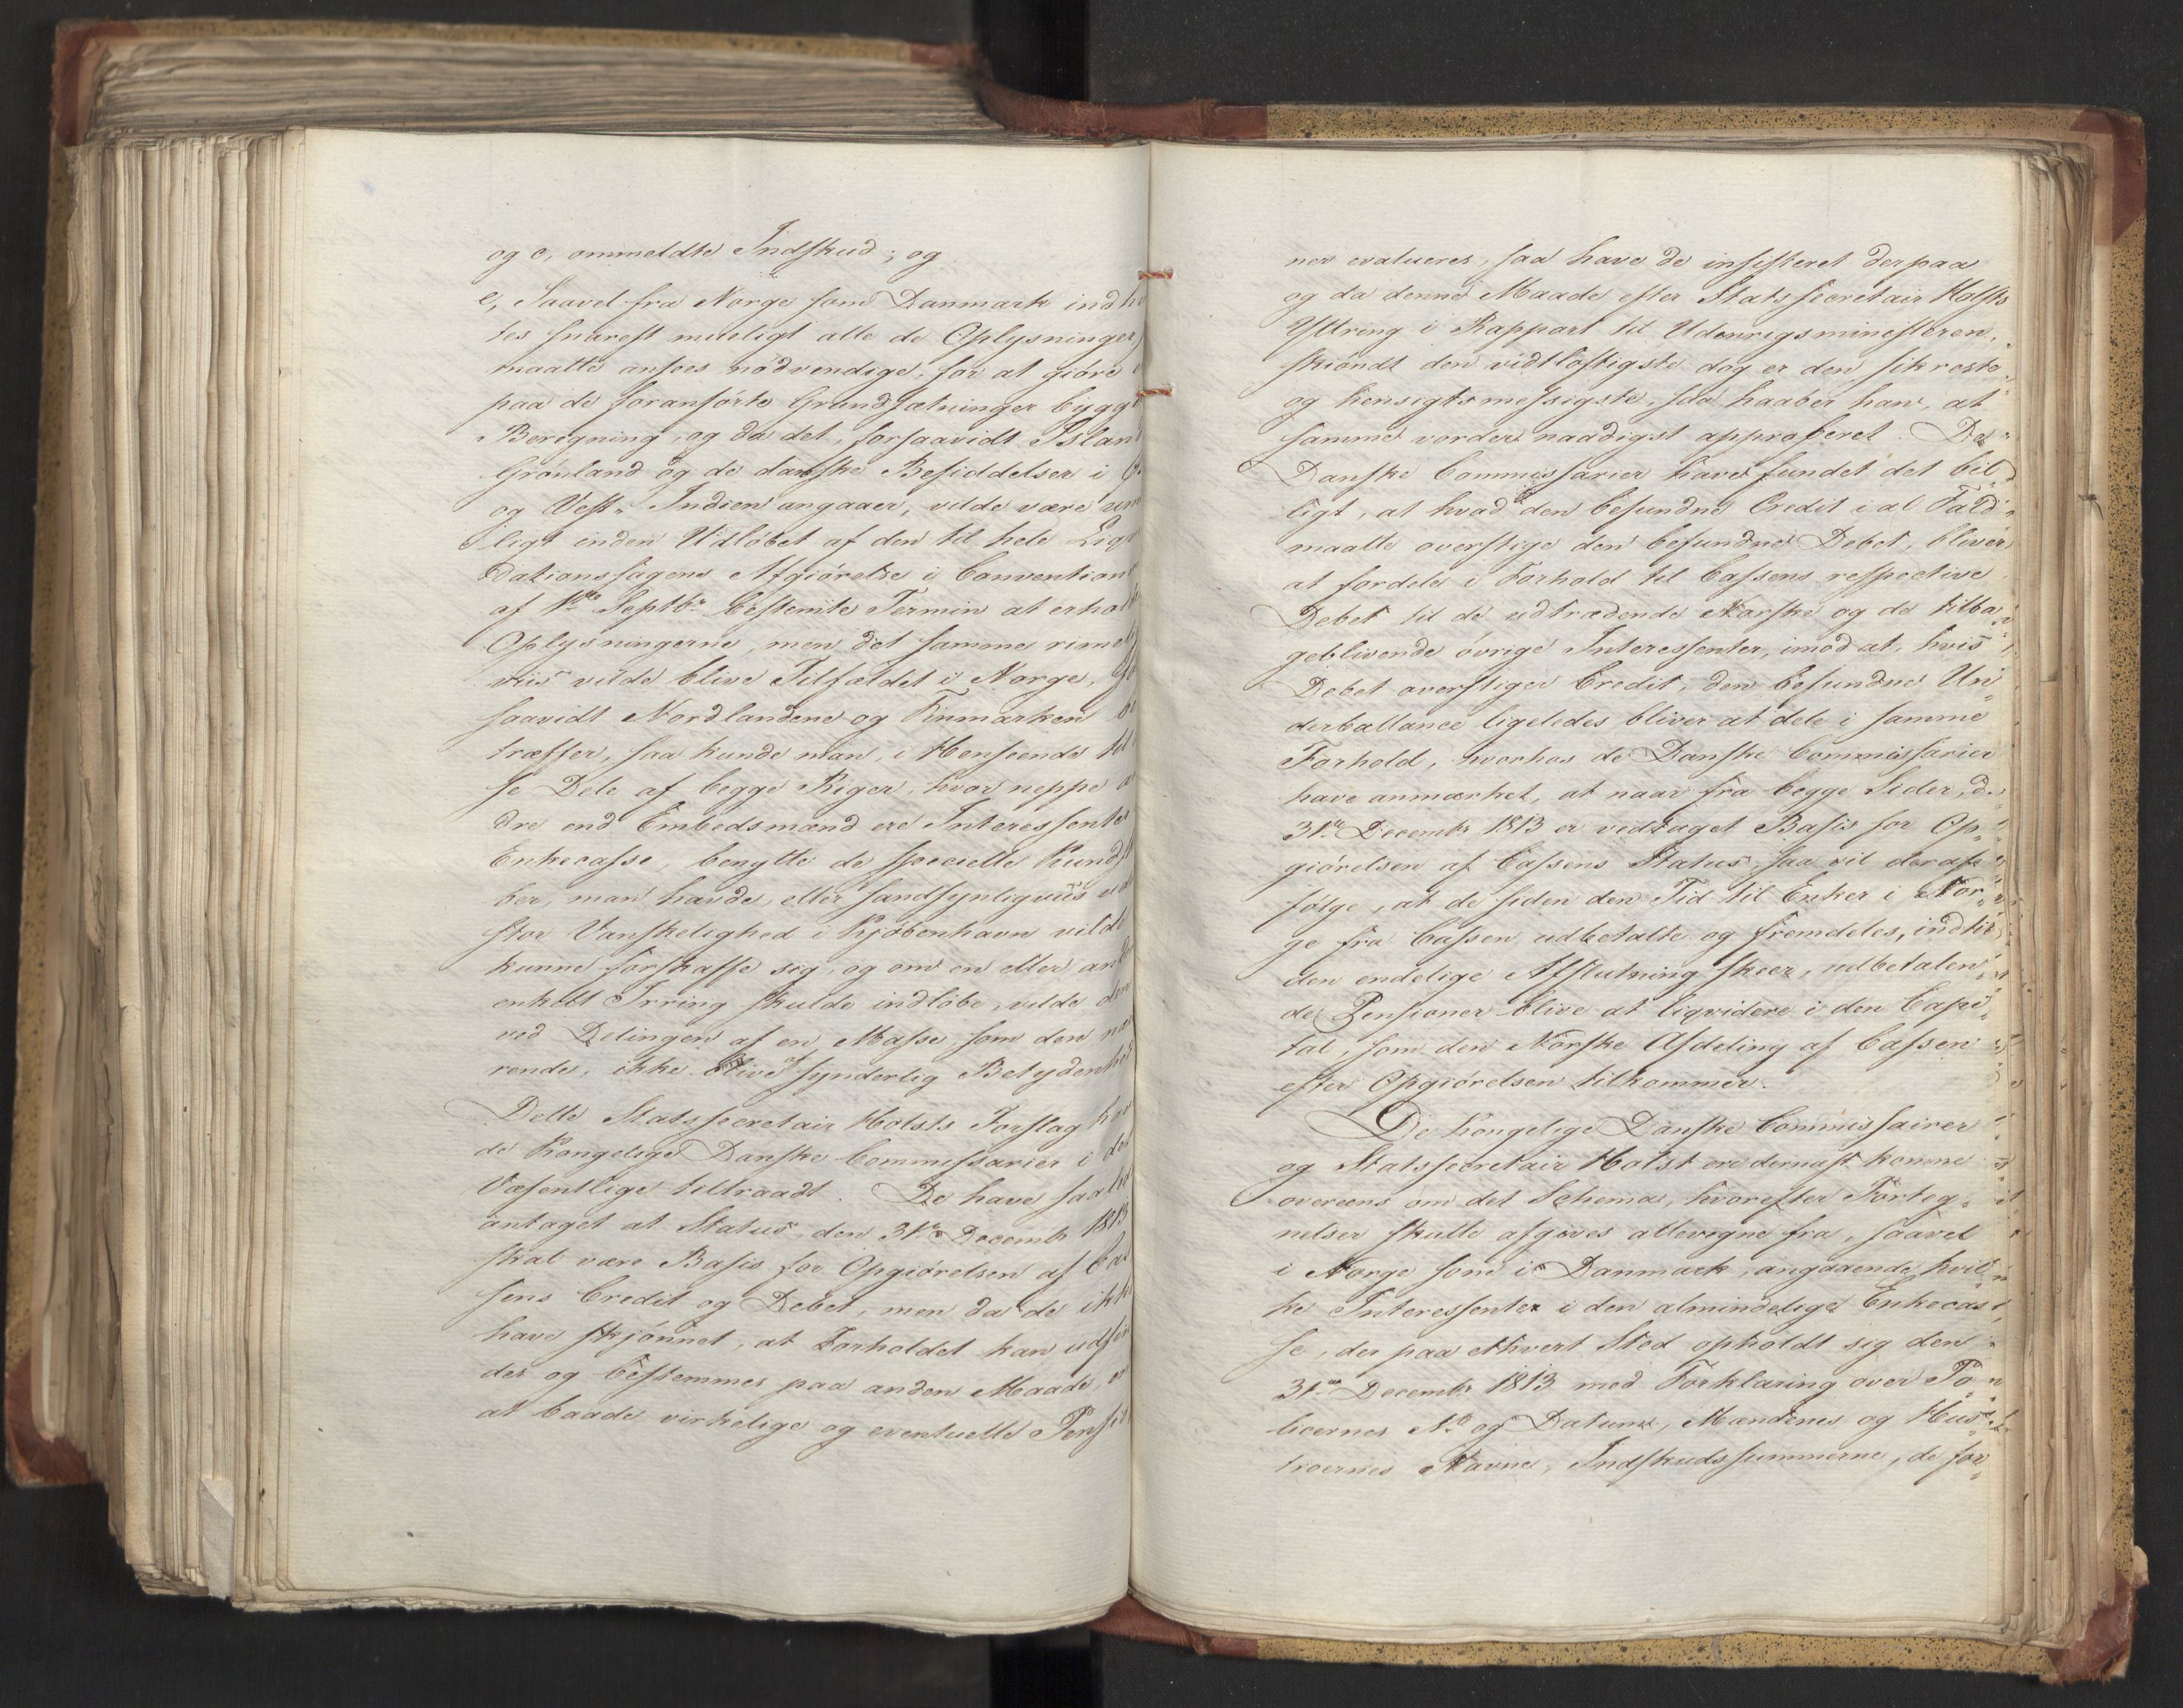 og c, ommeldte Indskud; og
e, Saavel fra Norge som Danmark indh
tes snarest mueligt alle de Oplysninger
maatte ansees nødvendige, for at giøre
paa de foranførte Grundsætninger bygg
Beregning, og da det, forsaavidt Islan
Grønland og de danske Besiddelser i
og Vest- Indien angaaer, vilde være um
ligt inden Udløbet af den til hele Liqv
dationssagens Afgiørelse i Convention
af 1ste Septbr bestemte Termin at erhol
Oplysningerne, men det samme rimel
viis vilde blive Tilfældet i Norge, for
saavidt Nordlandene og Finmarken be
træffer, saa kunde man, i Henseende til
se Dele af begge Riger, hvor neppe a
dre end Embedsmænd ere Interessenter
Enkecasse, benytte de specielle Kundsk
ber, man havde, eller sandsynligviis ud
stor Vanskelighed i Kjøbenhavn vilde
kunne forskaffe sig, og om en eller an
enkelt Irring skulde indløbe, vilde den
ved Delingen af en Masse, som den næ
rende, ikke blive af synderlig Betydenhed
Dette Statssecretair Holsts Forslag hav
de Kongelige Danske Commissarier i det
Væsentlige tiltraadt. De have saaled
antaget at Status, den 31te Decemb 1813
skal være Basis for Opgiørelsen af Cas
sens Credit og Debet, men da de ikk
have skjønnet, at Forholdet kan udfin
des og bestemmes paa anden Maade,
at baade virkelige og eventuelle Pensio
ner evalueres, saa have de insisteret derpaa
og da denne Maade efter Statssecretair Holsts
Yttring i Rapport til Udenrigsministeren,
skiøndt den vidtløftigste dog er den sikreste
og hensigtsmessigste, saa haaber han, at
samme vorder naadigst approberet. De
Danske Commissarier have fundet det bil
ligt, at hvad den befundne Credit i al Fald
maatte overstige den befundne Debet, bliver
at fordele i Forhold til Cassens respective
Debet til de udtrædende Norske og de tilba
geblivende øvrige Interessenter, imod at, hvis
Debet overstiger Credit, den befundne Un
derballance ligeledes bliver at dele i samme
Forhold, hvorhos de Danske Commissarier
have anmærket, at naar fra begge Sider, d.
31te Decembr 1813 er vedtaget Basis for Op
giørelsen af Cassens Status, saa vil deraf
følge, at de siden den Tid til Enker i Nor
ge fra Cassen udbetalte og fremdeles, indtil
den endelige Afslutning skeer, udbetalen
de Pensioner blive at liqvidere i den Capi
tal, som den Norske Afdeling af Cassen
efter Opgiørelsen tilkommer.
De Kongelige Danske Commissairer
og Statssecretair Holst ere dernæst komne
overeens om det Schema, hvorefter Forteg
nelser skulle afgives allevegne fra, saavel
i Norge som i Danmark, angaaende, hvil
ke Interessenter i den almindelige Enkecas
se, der paa ethvert Sted opholdt sig den
31te Decembr 1813 med Forklaring over Po
licernes No og Datum, Mændenes og Hus
troernes Navne, Indskudssummerne, de for